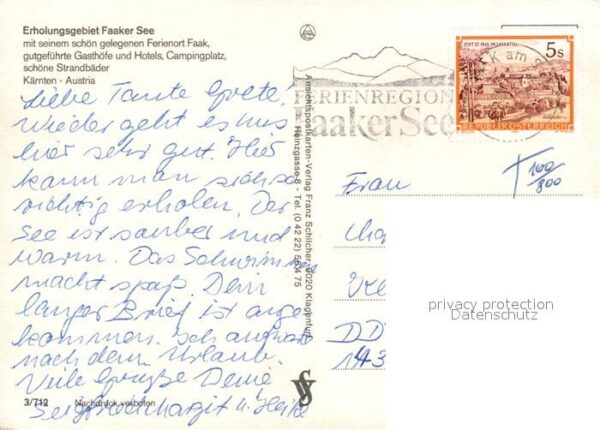 Erholungsgebiet Faaker See
mit seinem schön gelegenen Ferienort Faak,
gutgeführte Gasthöfe und Hotels, Campingplatz,
schöne Strandbäder
Kärnten · Austria
Liebe Tante Grete!
Wieder geht es uns
hier sehr gut. Hier
kann man sich so
richtig erholen. Der
See ist sauber und
warm. Das Schwimmen
macht spaß. Dein
langer Brief ist ange
kommen. Ich antworte
nach dem Urlaub.
Viele Grüße Deine
u. Heike
3/712 Nachdruck verboten
Ansichtspostkarten-Verlag Franz Schilcher, 9020 Klagenfurt
Heinzgasse 8 - Tel. (0 42 22) 56 4 75
FERIENREGION
Faaker See
STIFT ST. PAUL IM LAVANTTAL
5 S
REPUBLIK ÖSTERREICH
T 100/800
Frau
DD
143
privacy protection
Datenschutz